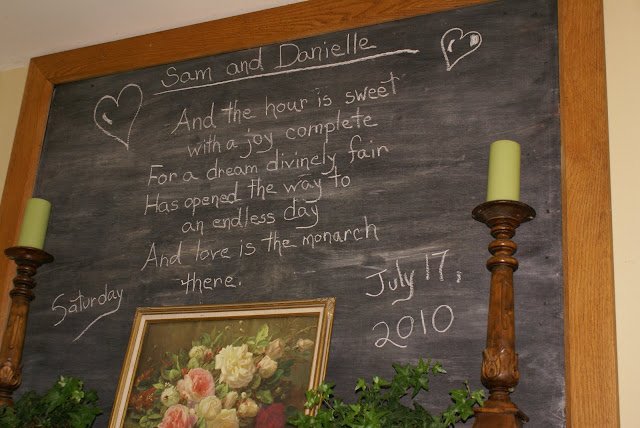 Sam and Danielle
And the hour is sweet
with a joy complete
For a dream divinely fair
Has opened the way to
an endless day
And love is the monarch
there.
Saturday
July 17,
2010